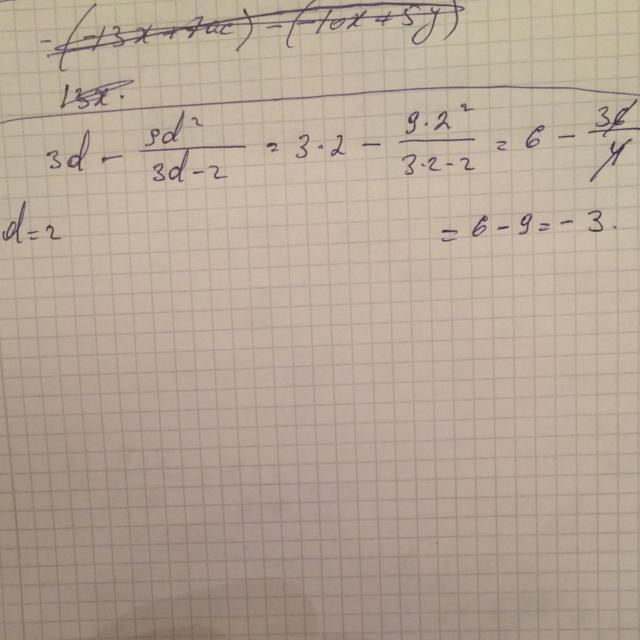 -(-13x+7y)-(-10x+5y)
13x.
3d - 9d²/(3d-2) = 3·2 - 9·2²/(3·2-2) = 6 - 36/4
d=2 = 6-9=-3.